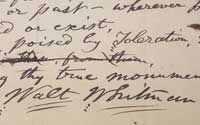 or past — wherever p
d or exist,
poised by Toleration,
from them,
g thy true monumen
Walt Whitman